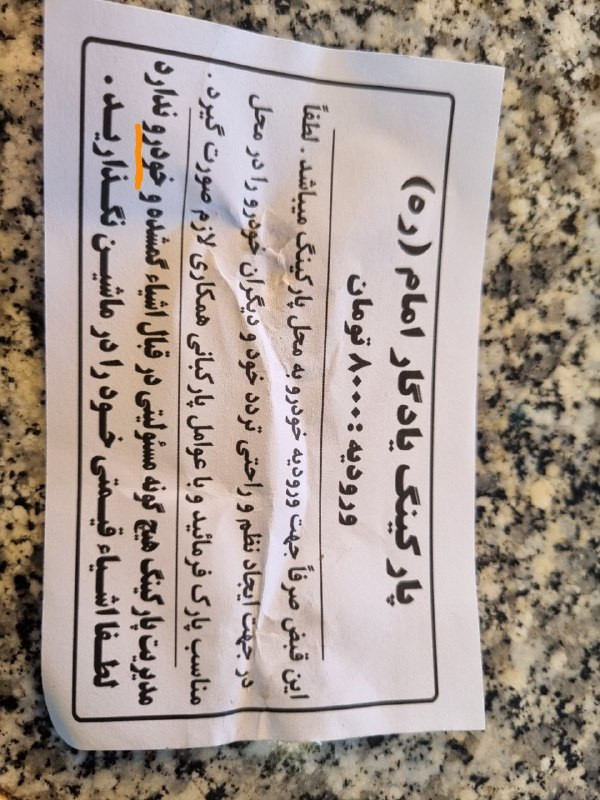 پارکینگ یادگار امام (ره)
ورودیه : ۸۰۰۰ تومان
این قبض صرفاً جهت ورودیه خودرو به محل پارکینگ میباشد . لطفاً
در جهت ایجاد نظم و راحتی تردد خود و دیگران خودرو را در محل
مناسب پارک فرمائید و با عوامل پارکبانی همکاری لازم صورت گیرد .
مدیریت پارکینگ هیچ گونه مسئولیتی در قبال اشیاء گمشده و خودرو ندارد
لطفا اشیاء قیمتی خود را در ماشین نگذارید .